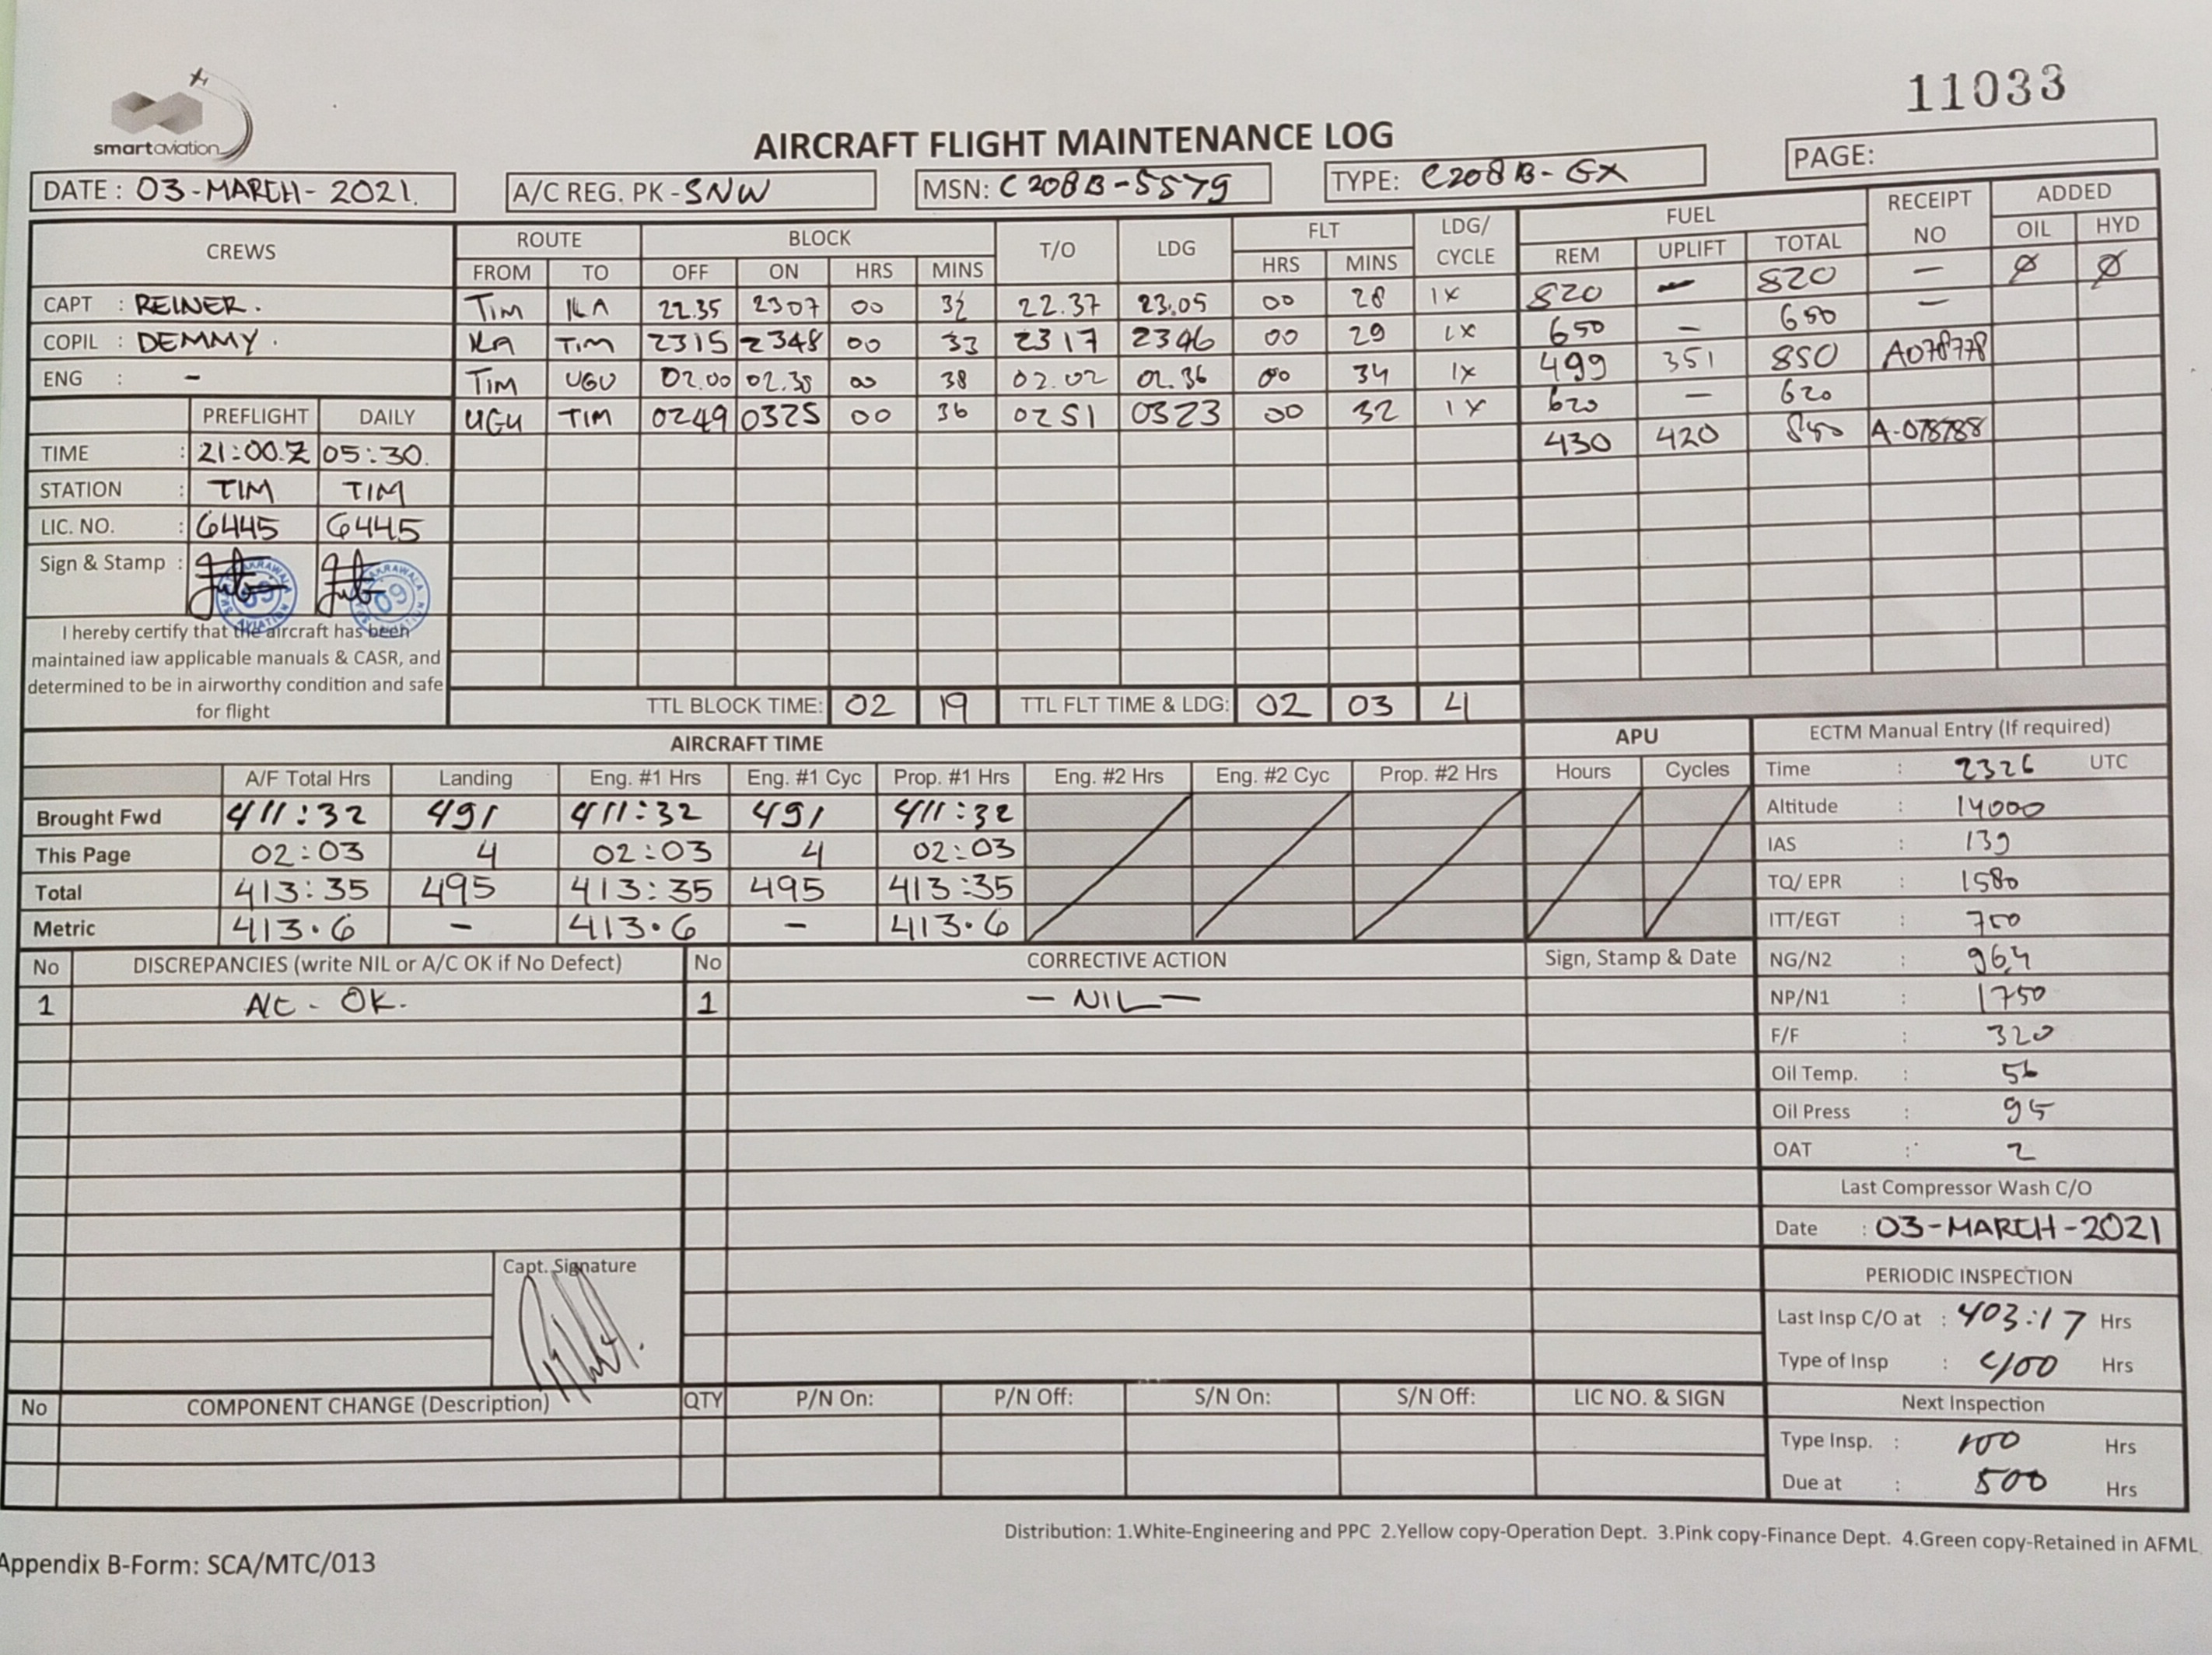 11033
smartaviation
AIRCRAFT FLIGHT MAINTENANCE LOG
PAGE:
DATE : 03-MARCH-2021. A/C REG. PK-SNW MSN: C208B-5579 TYPE: C208B-GX
CREWS ROUTE BLOCK T/O LDG FLT LDG/ CYCLE FUEL RECEIPT NO ADDED
FROM TO OFF ON HRS MINS HRS MINS REM UPLIFT TOTAL OIL HYD
CAPT : REINER. TIM ILA 22.35 2307 00 32 22.37 23.05 00 28 1X 820 - 820 - Ø Ø
COPIL : DEMMY. ILA TIM 2315 2348 00 33 2317 2346 00 29 1X 650 - 650 -
ENG : - TIM UGU 02.00 02.38 00 38 02.02 02.36 00 34 1X 499 351 850 A078778
PREFLIGHT DAILY UGU TIM 0249 0325 00 36 0251 0323 00 32 1X 620 - 620
TIME : 21:00.Z 05:30. 430 420 850 A-078788
STATION : TIM TIM
LIC. NO. : 6445 6445
Sign & Stamp :
I hereby certify that the aircraft has been
maintained iaw applicable manuals & CASR, and
determined to be in airworthy condition and safe
for flight
TTL BLOCK TIME: 02 19 TTL FLT TIME & LDG: 02 03 4
AIRCRAFT TIME APU
A/F Total Hrs Landing Eng. #1 Hrs Eng. #1 Cyc Prop. #1 Hrs Eng. #2 Hrs Eng. #2 Cyc Prop. #2 Hrs Hours Cycles
Brought Fwd 411:32 491 411:32 491 411:32
This Page 02:03 4 02:03 4 02:03
Total 413:35 495 413:35 495 413:35
Metric 413.6 - 413.6 - 413.6
ECTM Manual Entry (If required)
Time : 2326 UTC
Altitude : 14000
IAS : 139
TQ/ EPR : 1580
ITT/EGT : 700
NG/N2 : 96,4
NP/N1 : 1750
F/F : 320
Oil Temp. : 56
Oil Press : 95
OAT : 2
Last Compressor Wash C/O
Date : 03-MARCH-2021
PERIODIC INSPECTION
Last Insp C/O at : 403:17 Hrs
Type of Insp : 400 Hrs
Next Inspection
Type Insp. : 100 Hrs
Due at : 500 Hrs
No DISCREPANCIES (write NIL or A/C OK if No Defect) No CORRECTIVE ACTION Sign, Stamp & Date
1 A/C - OK. 1 - NIL -
Capt. Signature
No COMPONENT CHANGE (Description) QTY P/N On: P/N Off: S/N On: S/N Off: LIC NO. & SIGN
Distribution: 1.White-Engineering and PPC 2.Yellow copy-Operation Dept. 3.Pink copy-Finance Dept. 4.Green copy-Retained in AFML
Appendix B-Form: SCA/MTC/013